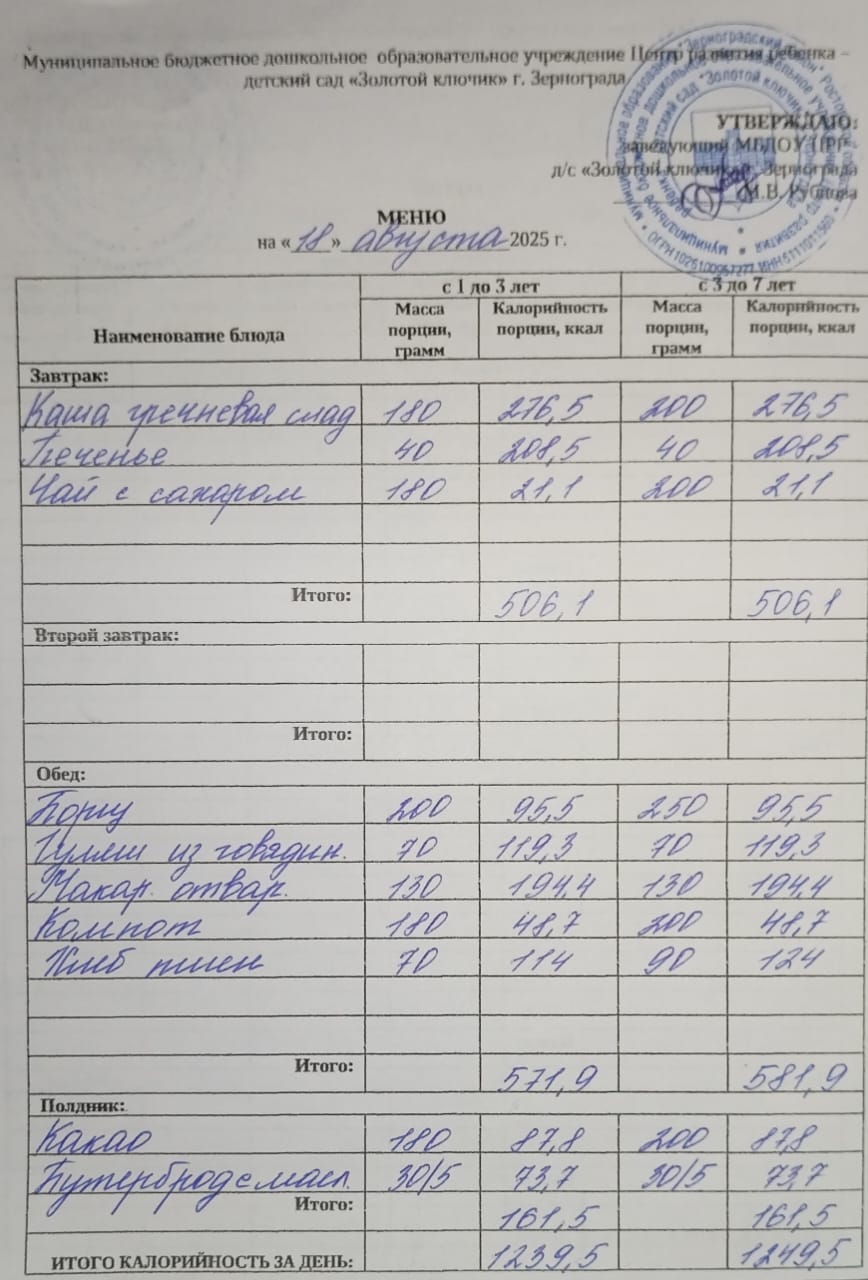 Муниципальное бюджетное дошкольное образовательное учреждение Центр развития ребенка –
детский сад «Золотой ключик» г. Зернограда
УТВЕРЖДАЮ:
заведующий МБДОУ ЦРР
д/с «Золотой ключик» г. Зернограда
М.В. Рубцова
МЕНЮ
на «18» августа 2025 г.
Наименование блюда с 1 до 3 лет с 3 до 7 лет
Масса порции, грамм Калорийность порции, ккал Масса порции, грамм Калорийность порции, ккал
Завтрак:
Каша гречневая слад 180 276,5 200 276,5
Печенье 40 208,5 40 208,5
Чай с сахаром 180 21,1 200 21,1
Итого: 506,1 506,1
Второй завтрак:
Итого:
Обед:
Борщ 200 95,5 250 95,5
Гуляш из говядин. 70 119,3 70 119,3
Макар. отвар. 130 194,4 130 194,4
Компот 180 48,7 200 48,7
Хлеб пшен 70 114 90 124
Итого: 571,9 581,9
Полдник:
Какао 180 87,8 200 87,8
Бутерброд с масл. 30/5 73,7 30/5 73,7
Итого: 161,5 161,5
ИТОГО КАЛОРИЙНОСТЬ ЗА ДЕНЬ: 1239,5 1249,5